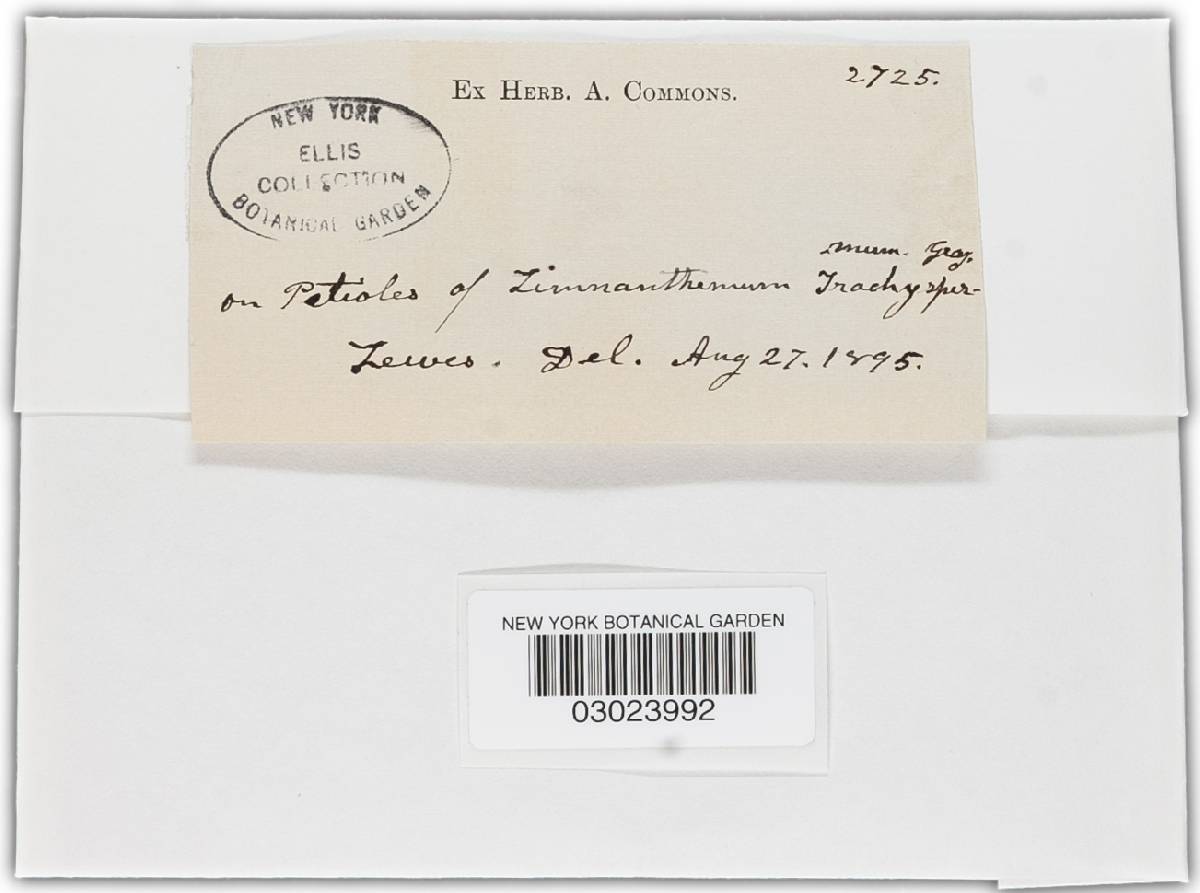 2725.
Ex Herb. A. Commons.
NEW YORK
ELLIS
COLLECTION
BOTANICAL GARDEN
mum. Gray.
on Petioles of Limnanthemum Trachysper-
Lewes. Del. Aug 27. 1895.
NEW YORK BOTANICAL GARDEN
03023992